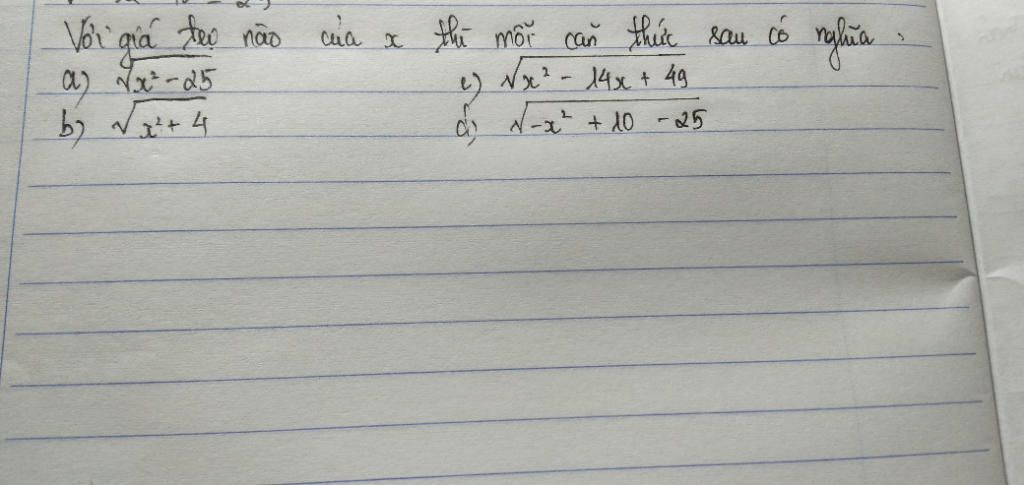 Với giá trị nào của x thì mỗi căn thức sau có nghĩa.
a) √x² - 25 c) √x² - 14x + 49
b) √x² + 4 d) √-x² + 10 - 25